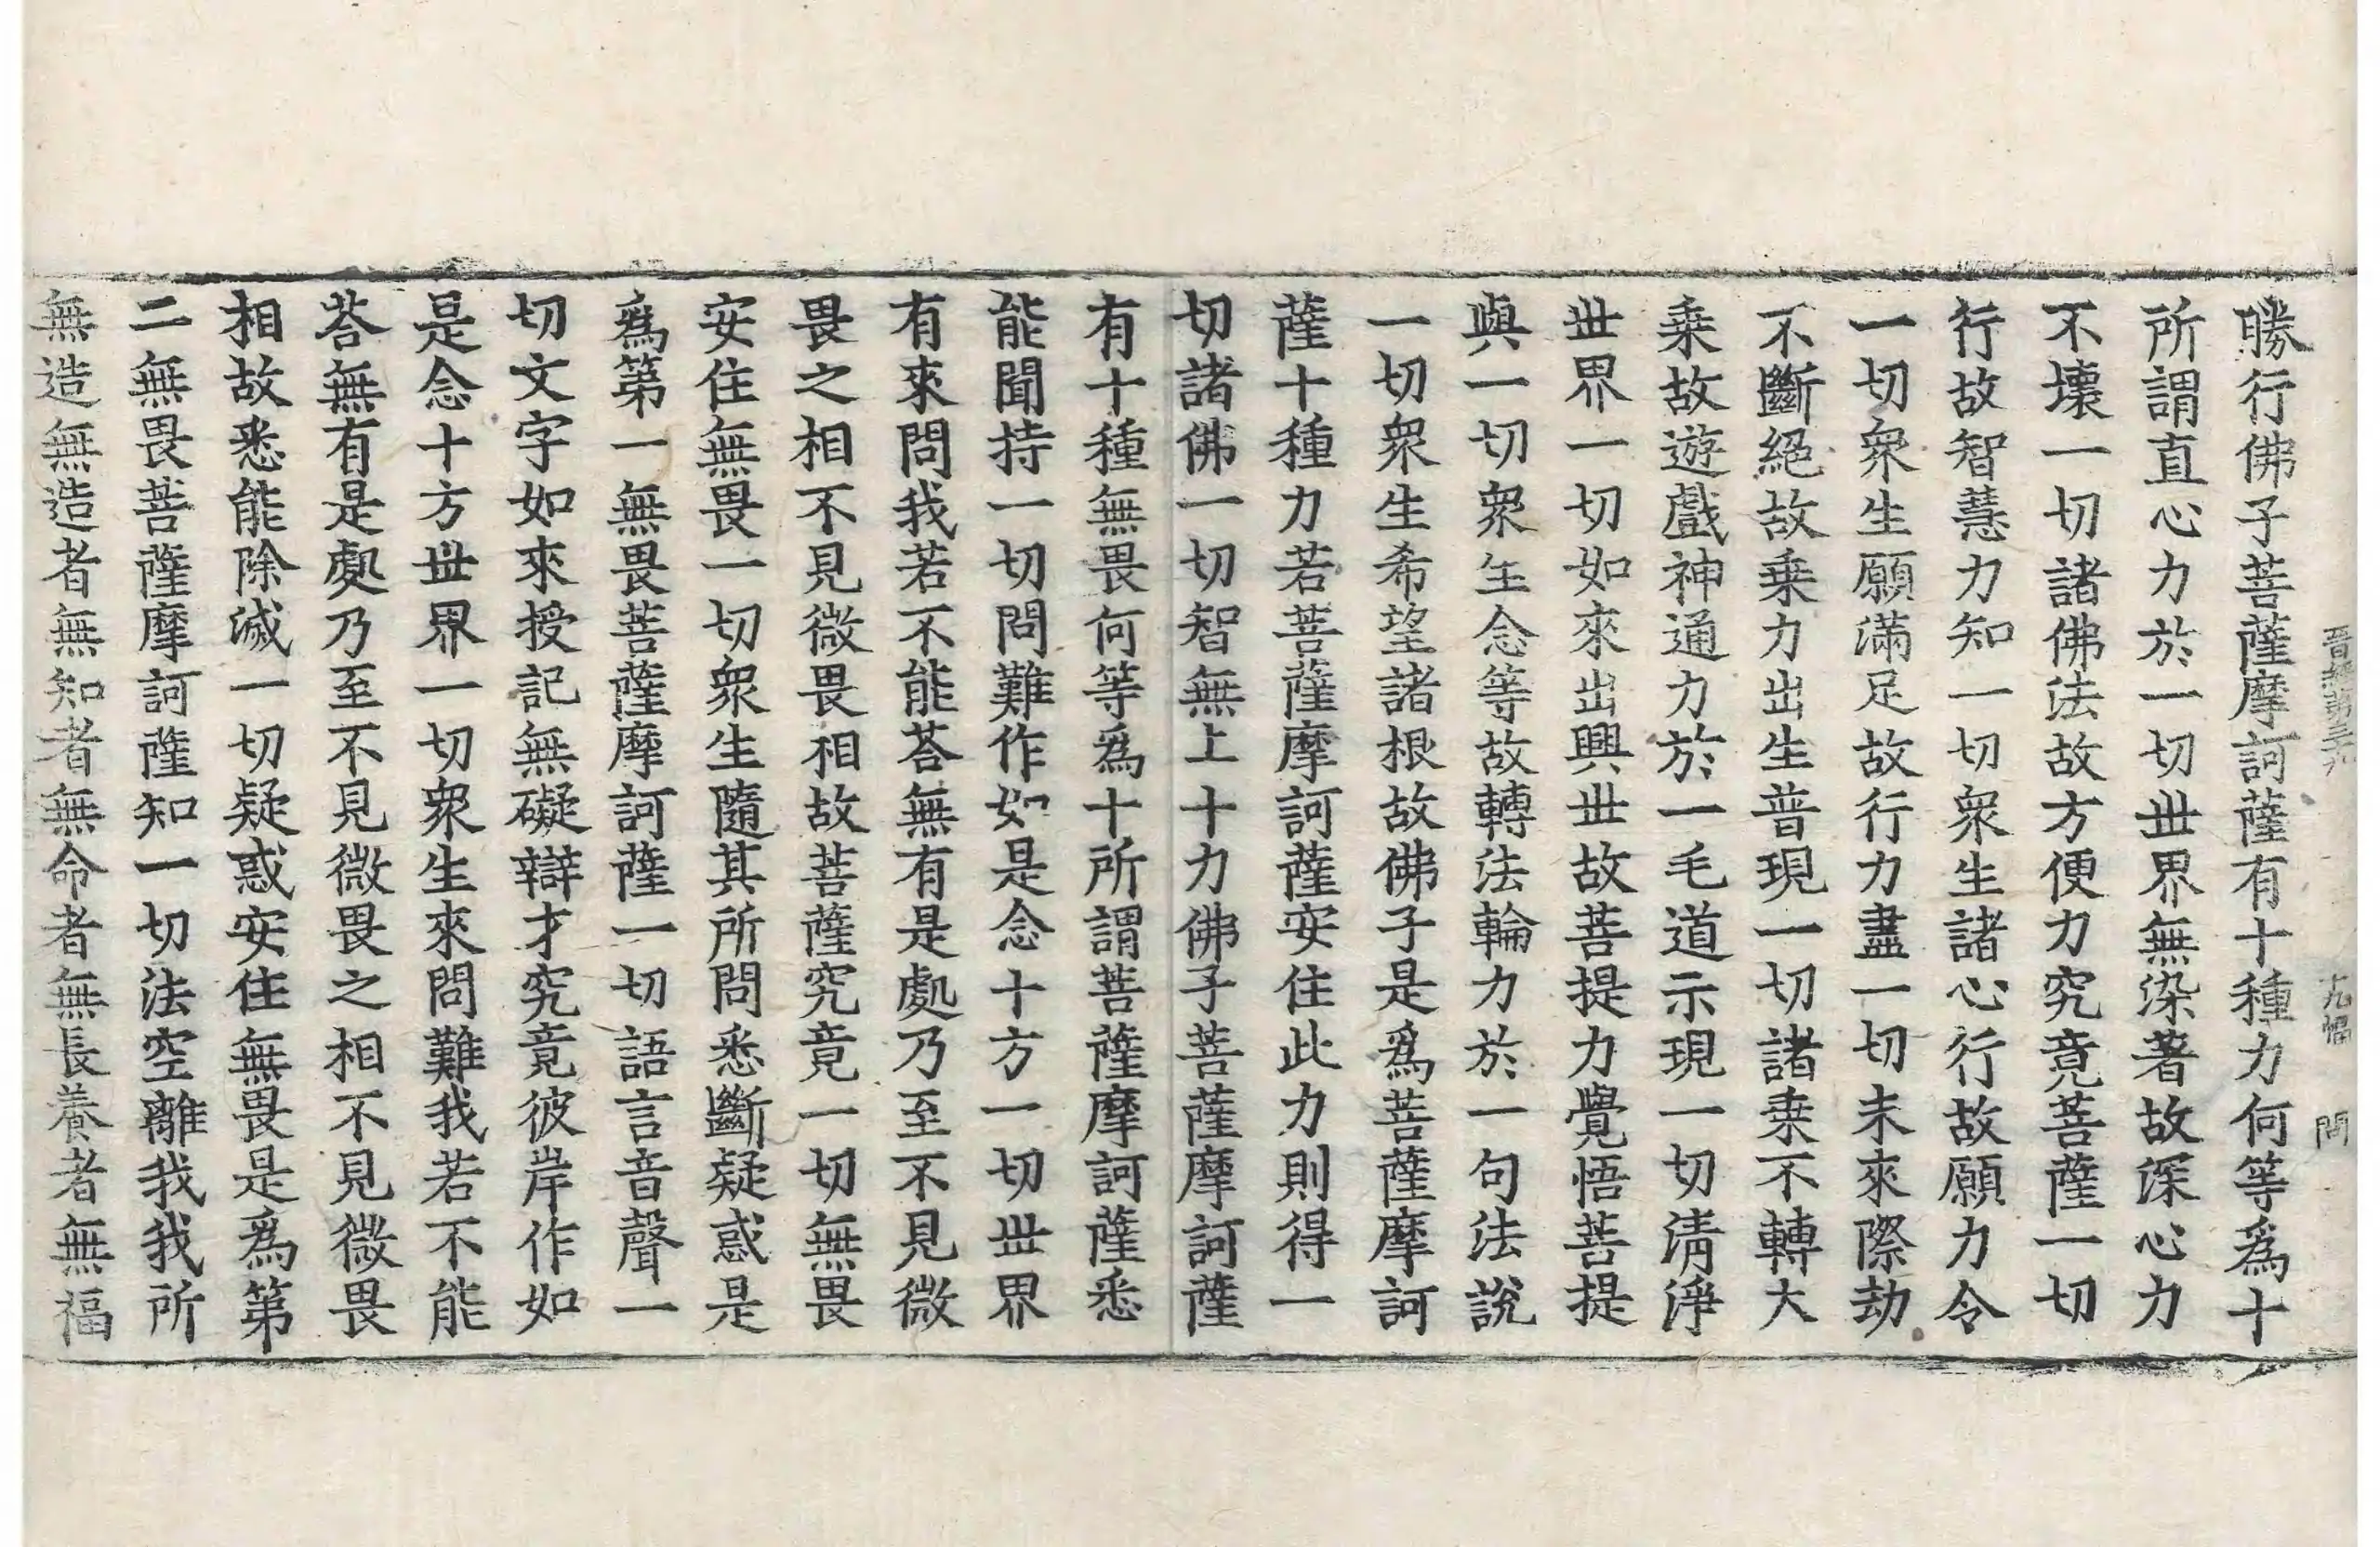 晋經第三十九 十九幅 問
勝行佛子菩薩摩訶薩有十種力何等爲十
所謂直心力於一切世界無染著故深心力
不壞一切諸佛法故方便力究竟菩薩一切
行故智慧力知一切衆生諸心行故願力令
一切衆生願滿足故行力盡一切未來際劫
不斷絕故乗力出生普現一切諸乗不轉大
乗故遊戲神通力於一毛道示現一切淸淨
世界一切如來出興世故菩提力覺悟菩提
與一切衆生念等故轉法輪力於一句法說
一切衆生希望諸根故佛子是爲菩薩摩訶
薩十種力若菩薩摩訶薩安住此力則得一
切諸佛一切智無上十力佛子菩薩摩訶薩
有十種無畏何等爲十所謂菩薩摩訶薩悉
能聞持一切問難作如是念十方一切世界
有來問我若不能荅無有是處乃至不見微
畏之相不見微畏相故菩薩究竟一切無畏
安住無畏一切衆生隨其所問悉斷疑惑是
爲第一無畏菩薩摩訶薩一切語言音聲一
切文字如來授記無礙辯才究竟彼岸作如
是念十方世界一切衆生來問難我若不能
荅無有是處乃至不見微畏之相不見微畏
相故悉能除滅一切疑惑安住無畏是爲第
二無畏菩薩摩訶薩知一切法空離我我所
無造無造者無知者無命者無長養者無福